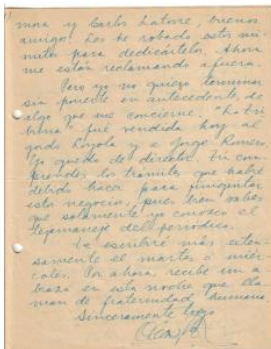 mona y Carlos Latorre, buenos
amigos. Les he robado estos mi-
nutos para dedicártelos. Ahora
me están reclamando afuera.
Pero yo no quiero terminar
sin ponerte en antecedente, de
algo que me concierne. "La Tri
buna" fué vendida hoy al
gordo Loyola y a Jorge Romero.
Yo quedo de director. Tú com-
prendes los trámites que habré
debido hacer para
este negocio, pues bien sabes
que solamente yo conozco el
tejemaneje del periódico.
Te escribiré más exten-
samente el martes o miér-
coles. Por ahora, recibe un a-
brazo en esta noche que lla-
man de fraternidad humana
Sinceramente tuyo